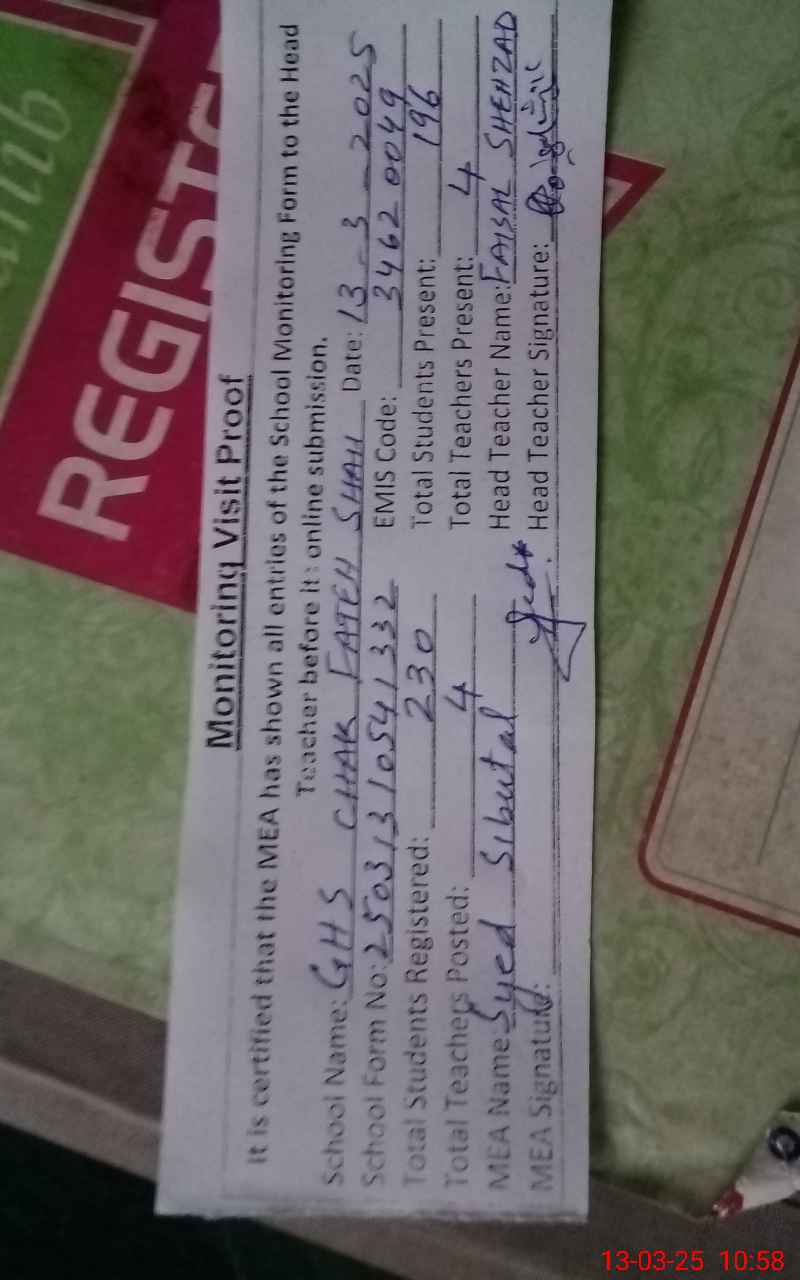 REGIST
Monitoring Visit Proof
It is certified that the MEA has shown all entries of the School Monitoring Form to the Head
Teacher before it's online submission.
School Name: GHS CHAK FATEH SHAH Date: 13-3-2025
School Form No: 25031310541332 EMIS Code: 34620049
Total Students Registered: 230 Total Students Present: 196
Total Teachers Posted: 4 Total Teachers Present: 4
MEA Name Syed Sibutal Head Teacher Name: FAISAL SHEHZAD
MEA Signature: Head Teacher Signature:
13-03-25 10:58